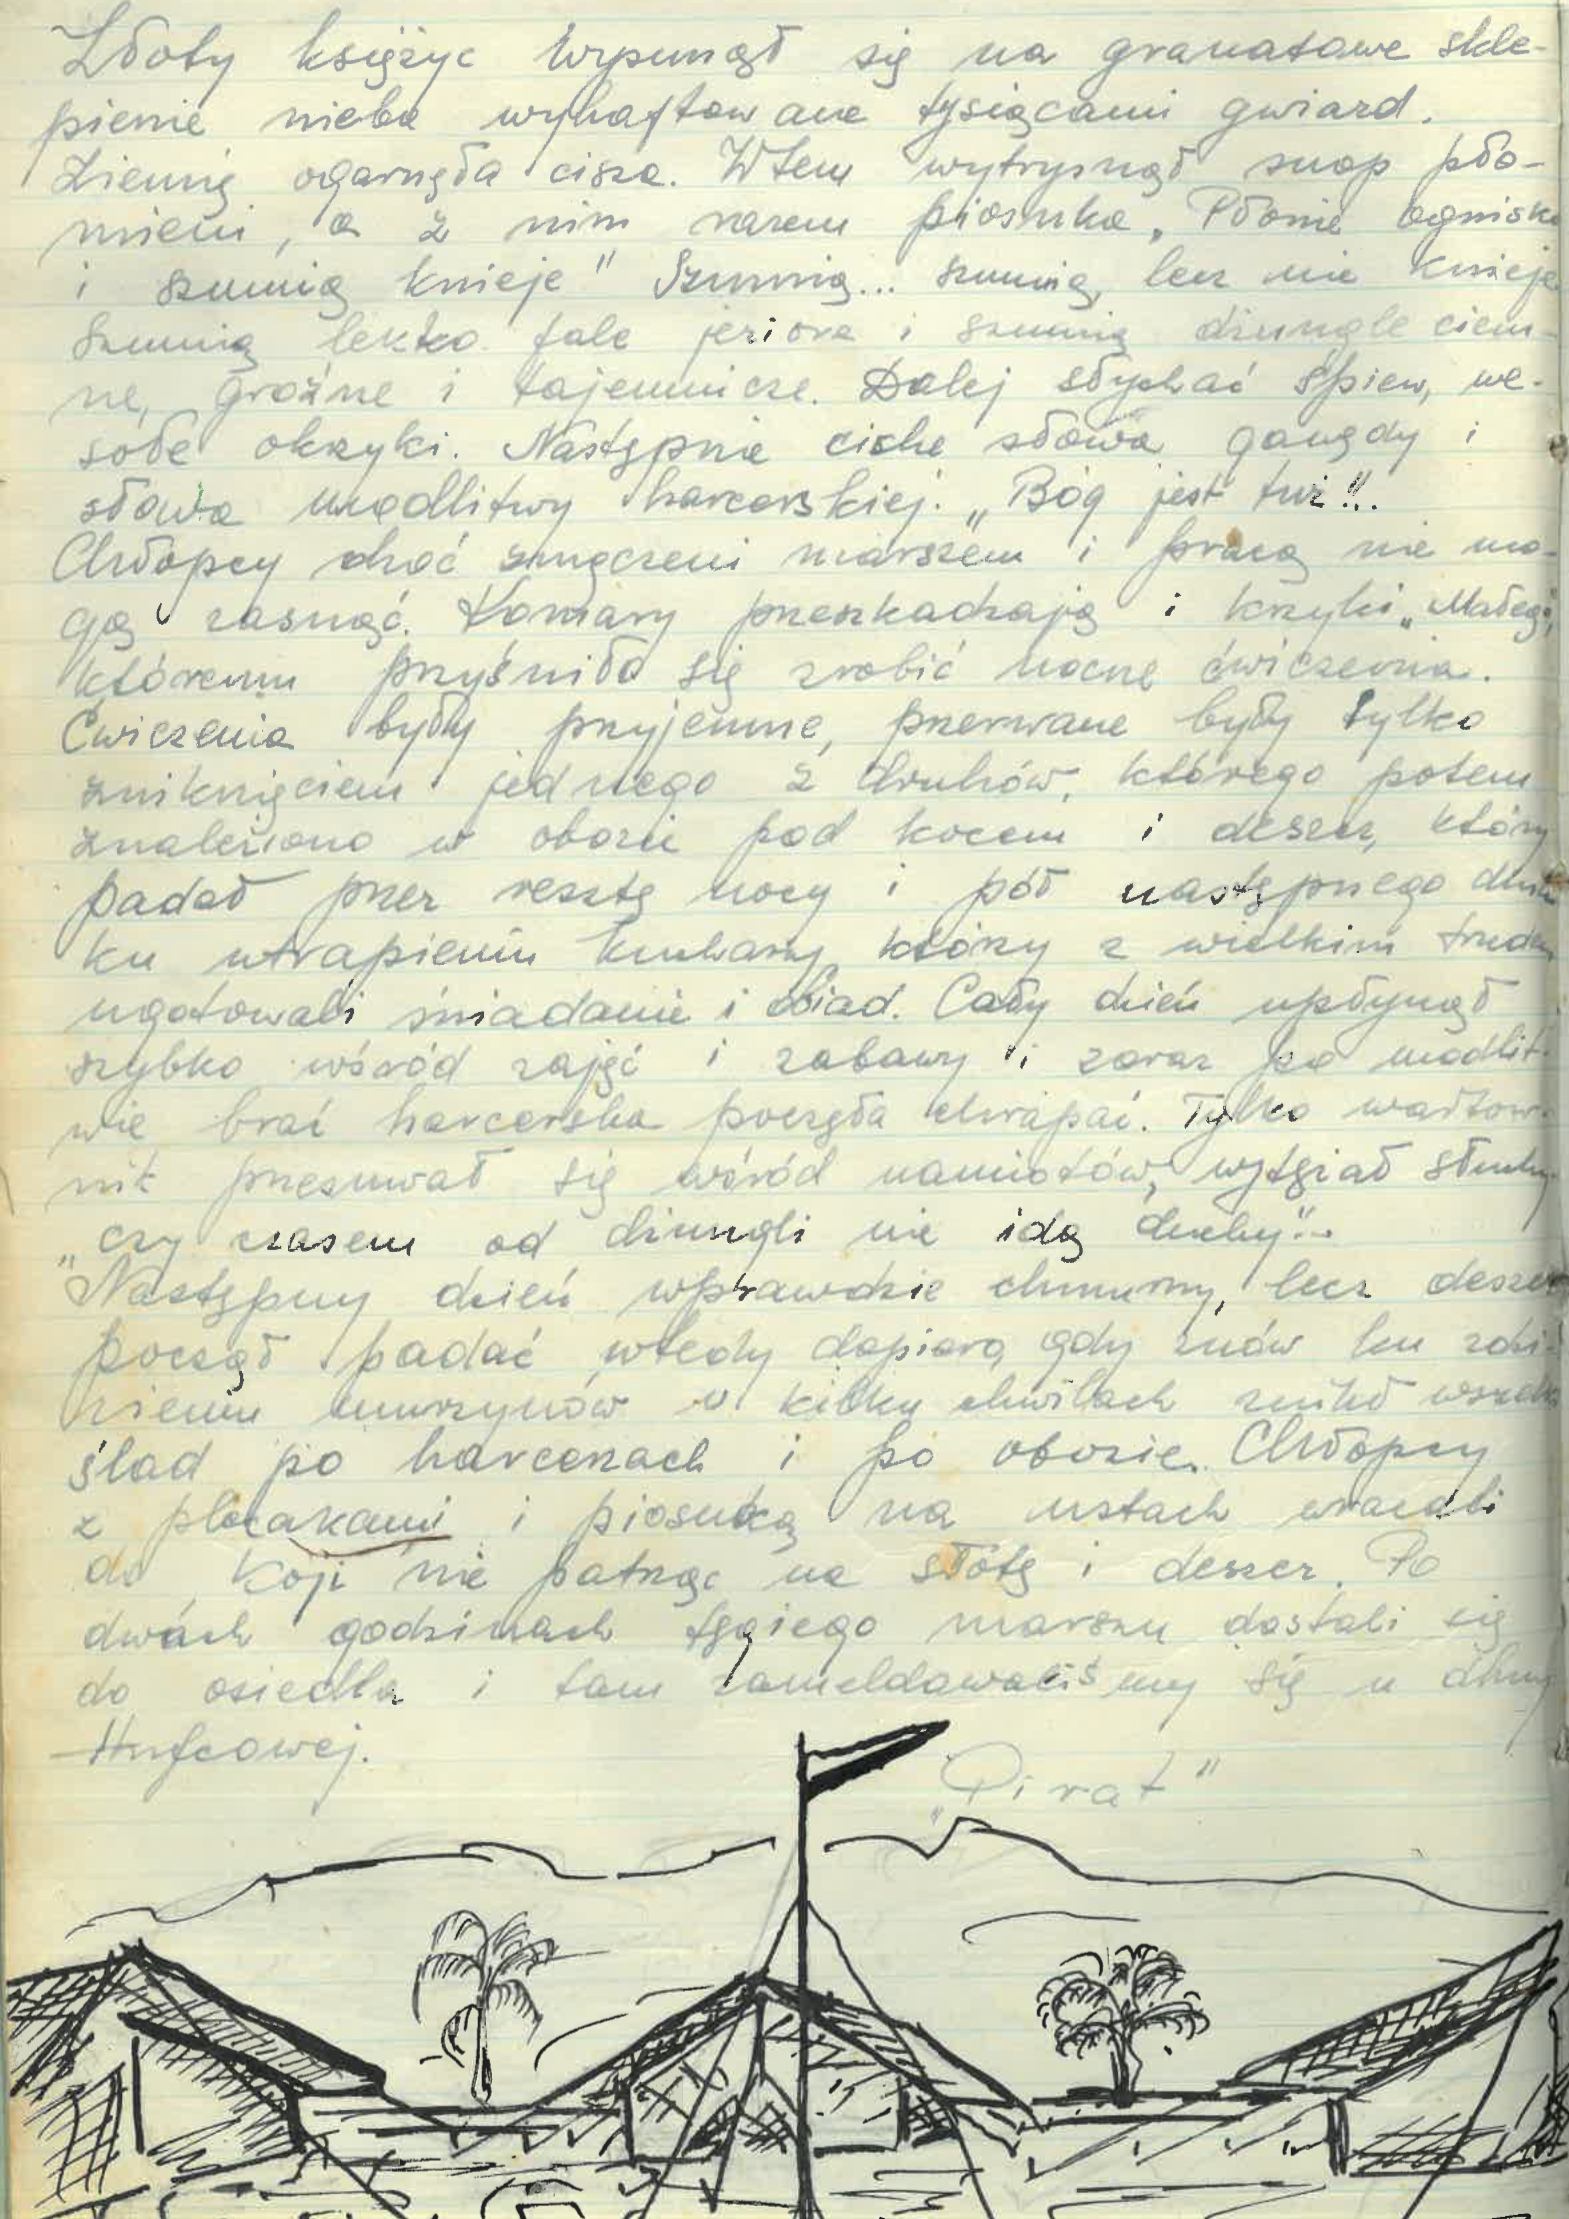 Złoty księżyc wspunął się na granatowe skle-
pienie nieba wyhaftowane tysiącami gwiazd.
Ziemię ogarnęła cisza. Wtem wytrysnął snop pło-
mieni, a z nim razem piosnka „Płonie ognisko
i szumią knieje" Szumią... szumią, lecz nie knieje.
Szumią lekko fale jeziora i szumią dżungle ciem-
ne, groźne i tajemnicze. Dalej słychać śpiew, we-
sołe okzyki. Następnie ciche słowa gawędy i
słowa modlitwy harcerskiej. „Bóg jest tuż"...
Chłopcy choć zmęczeni marszem i pracą nie mo-
gą zasnąć. Komary przeszkadzają i krzyki „Małego",
któremu przyśniło się zrobić nocne ćwiczenia.
Ćwiczenia były przyjemne, przerwane były tylko
zniknięciem jednego z druhów, którego potem
znaleziono w obozie pod kocem i deszcz, który
padał przez resztę nocy i pół następnego dnia
ku utrapieniu kucharzy, którzy z wielkim trudem
ugotowali śniadanie i obiad. Cały dzień upłynął
szybko wśród zajęć i zabawy i zaraz po modlit-
wie brać harcerska poczęła chrapać. Tylko wartow-
nik przesuwał się wśród namiotów, wytężał słuch,
„czy czasem od dżungli nie idą duchy"...
Następny dzień wprawdzie chmurny, lecz deszcz
począł padać wtedy dopiero, gdy znów ku zdzi-
wieniu murzynów w kilku chwilach znikł wszelki
ślad po harcerzach i po obozie. Chłopcy
z plecakami i piosnką na ustach wracali
do Koji nie patrząc na słotę i deszcz. Po
dwóch godzinach tęgiego marszu dostali się
do osiedla i tam zameldowaliśmy się u dhny
Hufcowej.
„Pirat"